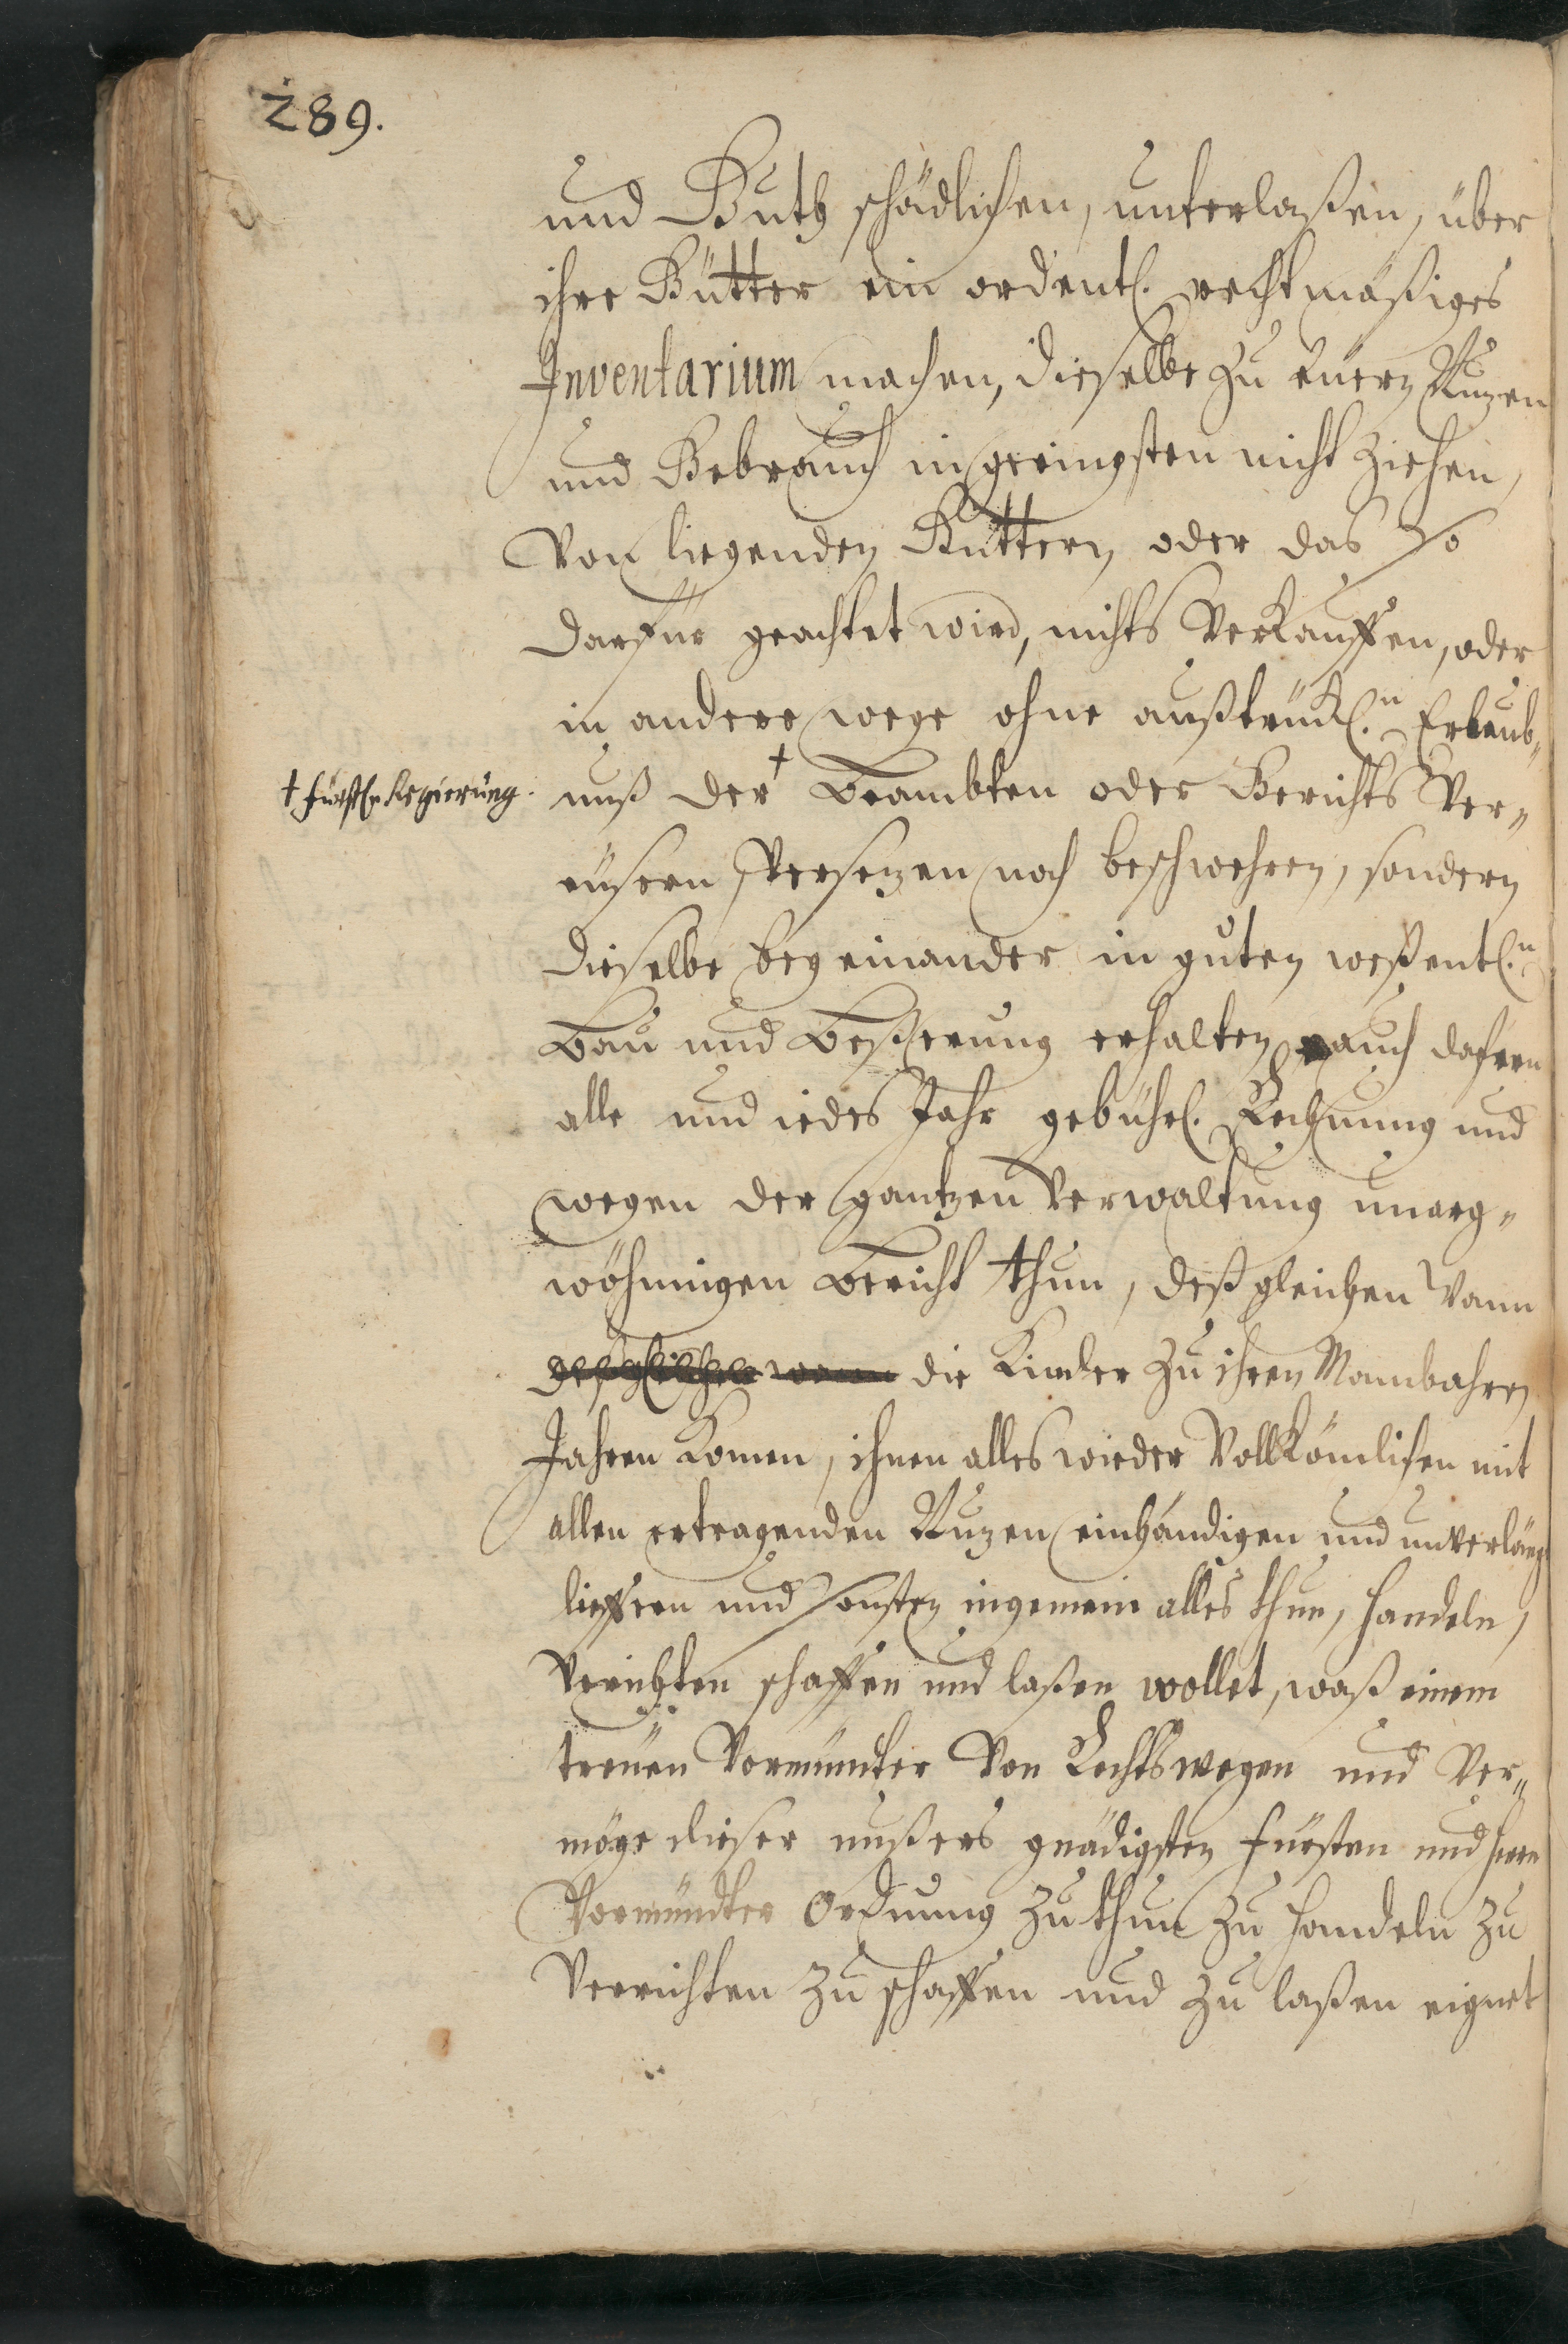 289.
und Guth schädlichen, unterlaßen, über
ihre Gütter ein ordentl. rechtmäßiges
Inventarium machen, dieselbe zu euern Nuzen
und Gebrauch in geringsten nicht ziehen,
Von liegenden Güttern oder das so
darfür geachtet wird, nichts Verkauffen, oder
in andere wege ohne außtrückl.n Erlaub„
† fürstl.n Regierung.
nuß der † Beambten oder Gerichts Ver„
eüsern Versezen noch beschwehren, sondern
dieselbe bey einander in guten weßentl.n
Bau und Beßerung erhalten auch dafern
alle und iedes Jahr gebührl. Rechnung und
wegen der gantzen Verwaltung unarg„
wöhnigen Bericht thun, deßgleichen wann
deßgleichen wann die Kinder zu ihren Mannbahren
Jahren komen, ihnen alles wieder Vollkömlichen mit
allen ertragenden Nuzen einhändigen und unverlängt
lieffern und sonsten ingemein alles thun, handeln,
Verichten schaffen und laßen wollet, waß einem
treuen Vormünder Von Rechtswegen und Ver„
möge dieser unßers gnädigsten Fürsten und Herrn
Vormündter Ordnung zu thun zu handeln zu
Verrichten zu schaffen und zu laßen eignet